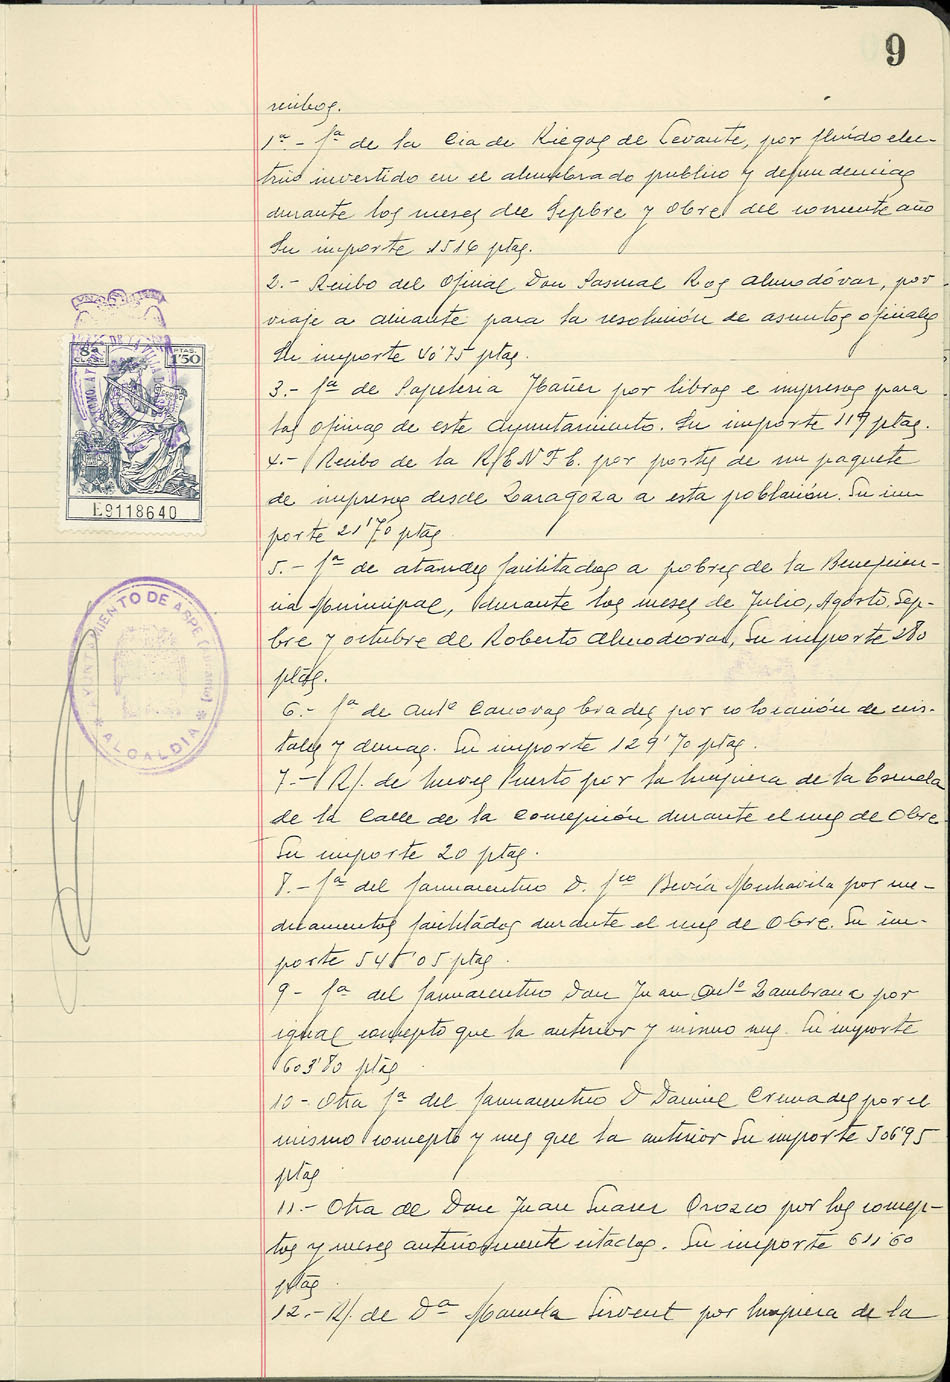 9
recibos.
1ª.- fª de la Cia de Riegos de Levante, por fluído elec-
trico invertido en el alumbrado publico y dependencias
durante los meses de Sepbre y Obre del corriente año
Su importe 1516 ptas.
2.- Recibo del Oficial Don Pascual Ros Almodóvar, por
viaje a Alicante para la resolución de asuntos oficiales
Su importe 40'75 ptas.
3.- fª de Papeteria Ibañez por libros e impresos para
las oficinas de este Ayuntamiento. Su importe 119 ptas.
4.- Recibo de la R.E.N.F.E. por portes de un paquete
de impresos desde Zaragoza a esta población. Su im-
porte 21'70 ptas
5.- fª de ataudes facilitados a pobres de la Beneficen-
cia Municipal, durante los meses de Julio, Agosto, Sep-
bre y octubre de Roberto Almodovar, Su importe 280
ptas.
6.- fª de Antº Canovas Cravdes por colocación de cris-
tales y demas. Su importe 129'70 ptas.
7.- R/. de Nieves Puerto por la limpieza de la Escuela
de la Calle de la Concepción durante el mes de Obre
Su importe 20 ptas.
8.- fª del farmaceutico D. fco Bevía Mechavila por me-
dicamentos facilitados durante el mes de Obre. Su im-
porte 545'05 ptas.
9- fª del farmaceutico Don Juan Antº Zambrana por
igual concepto que la anterior y mismo mes. Su importe
603'80 ptas
10- Otra fª del farmaceutico D Daniel Cremades por el
mismo concepto y mes que la anterior Su importe 506'95
ptas
11.- Otra de Don Juan Suarez Orozco por los concep-
tos y meses anteriormente citados. Su importe 611'60
ptas
12.- R/. de Dª Manuela Sirvent por limpieza de la
8ª CLASE
PTAS. 1'50
E9118640
AYUNTAMIENTO DE ASPE (Alicante)
* ALCALDIA *